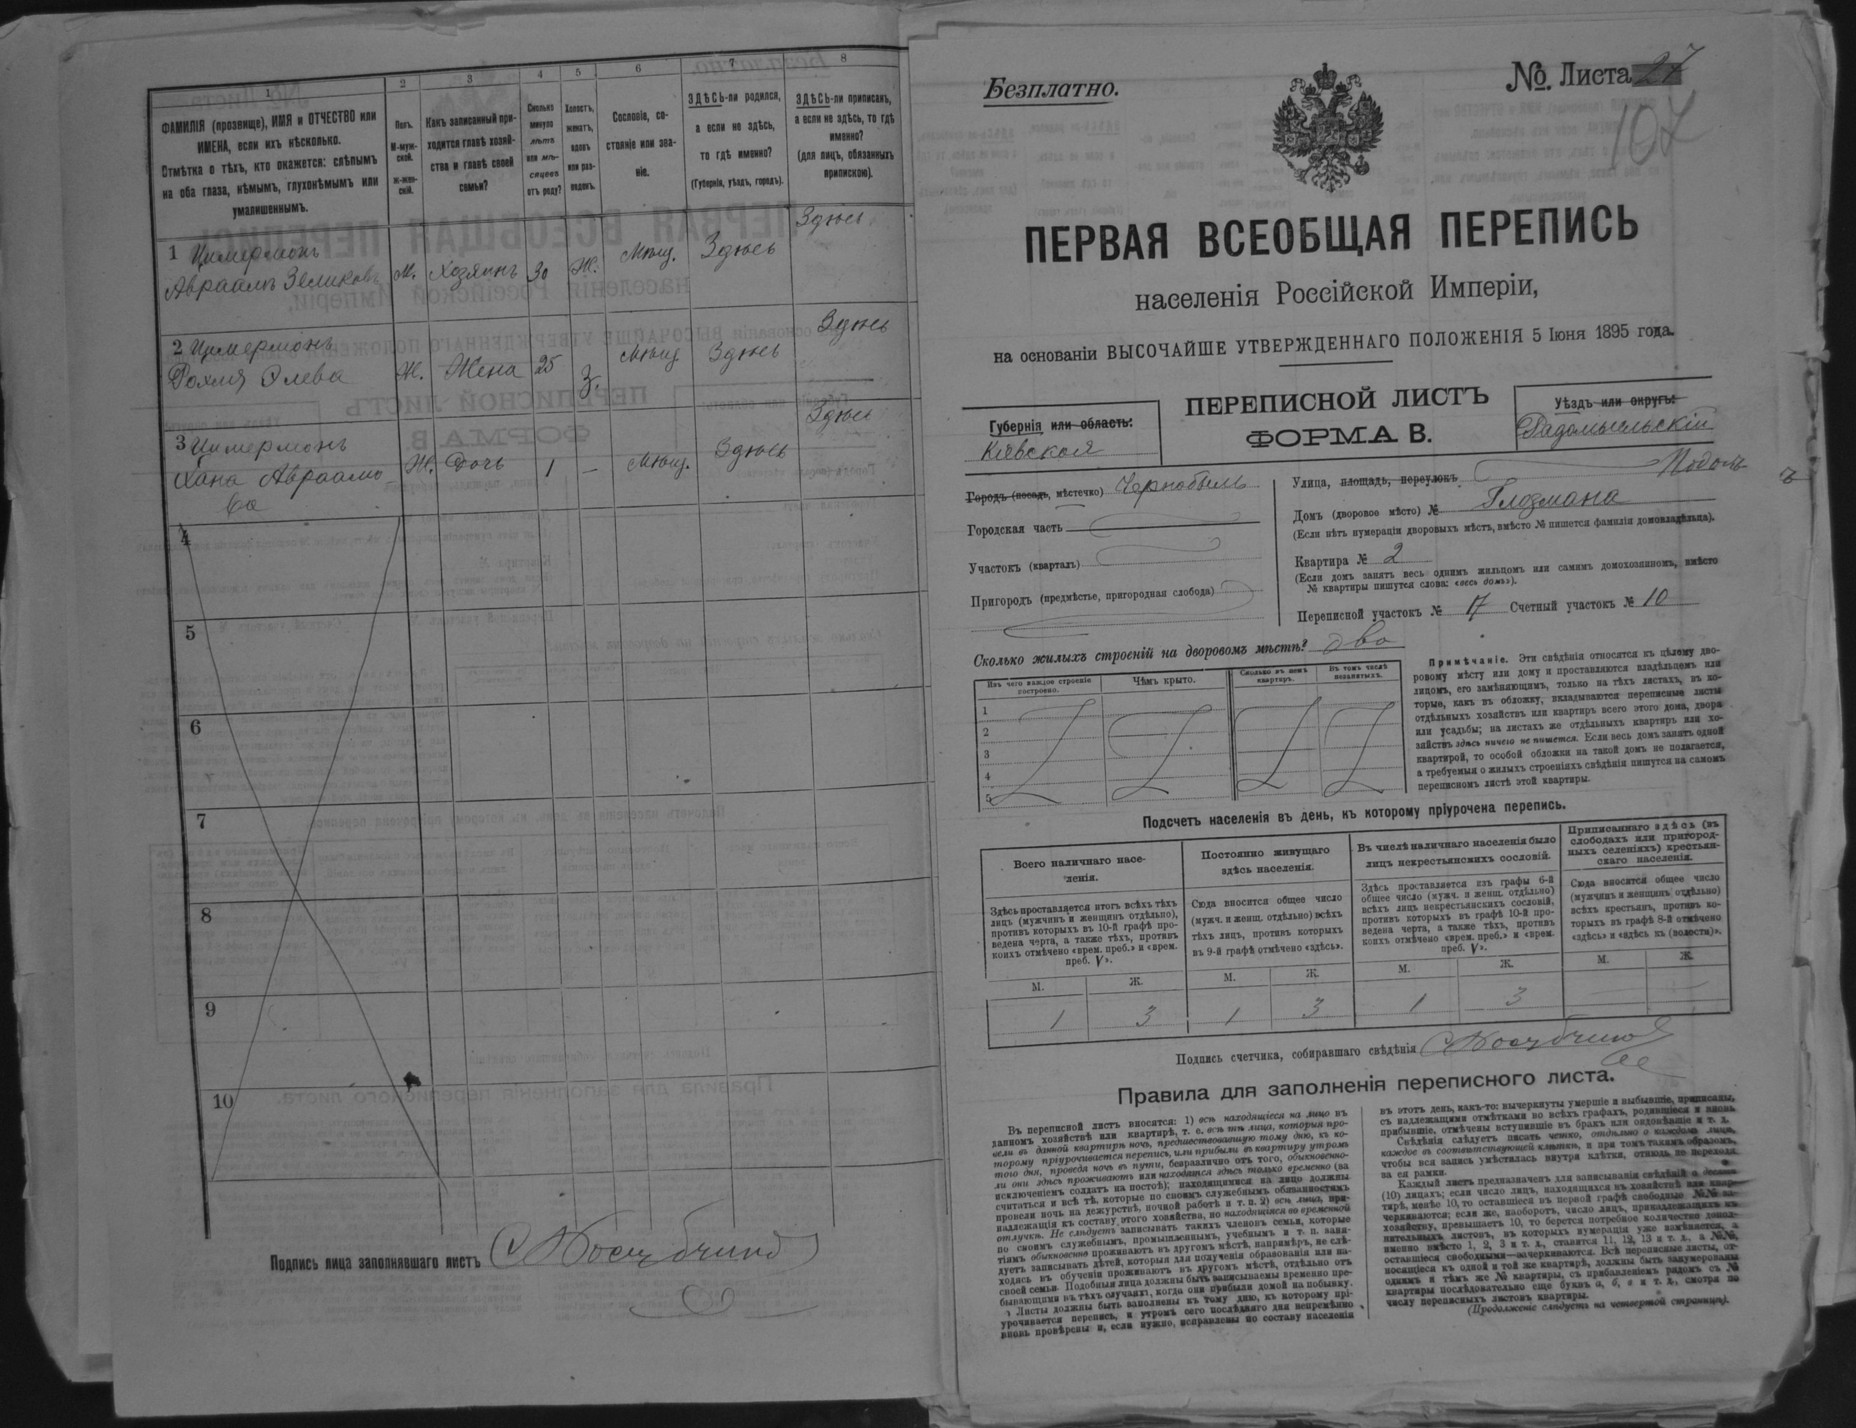 1
ФАМИЛІЯ (прозвище), ИМЯ и ОТЧЕСТВО или
ИМЕНА, если ихъ нѣсколько.
Отмѣтка о тѣхъ, кто окажется: слѣпымъ
на оба глаза, нѣмымъ, глухонѣмымъ или
умалишеннымъ.
2
Полъ.
М-муж-
ской.
ж-жен-
скій.
3
Какъ записанный при-
ходится главѣ хозяй-
ства и главѣ своей
семьи?
4
Сколько
минуло
лѣтъ
или мѣ-
сяцевъ
отъ роду?
5
Холостъ,
женатъ,
вдовъ
или раз-
веденъ.
6
Сословіе, со-
стояніе или зва-
ніе.
7
ЗДѢСЬ-ли родился,
а если не здѣсь,
то гдѣ именно?
(Губернія, уѣздъ, городъ).
8
ЗДѢСЬ-ли приписанъ,
а если не здѣсь, то гдѣ
именно?
(для лицъ, обязанныхъ
припискою).
1 Цимермонъ
Авраамъ Зеликовъ
м. Хозяинъ 30 Ж. Мѣщ. Здѣсь Здѣсь
2 Цимермонъ
Рохля Элева
Ж. Жена 25 З. Мѣщ. Здѣсь Здѣсь
3 Цимермонъ
Хана Авраамо
ва
Ж. Дочь 1 — Мѣщ. Здѣсь Здѣсь
4
5
6
7
8
9
10
Подпись лица заполнявшаго листъ
Безплатно.
№. Листа 27
107
ПЕРВАЯ ВСЕОБЩАЯ ПЕРЕПИСЬ
населенія Россійской Имперіи,
на основаніи ВЫСОЧАЙШЕ УТВЕРЖДЕННАГО ПОЛОЖЕНІЯ 5 Іюня 1895 года.
Губернія или область:
Кіевская
ПЕРЕПИСНОЙ ЛИСТЪ
ФОРМА В.
Уѣздъ или округъ:
Радомысльскій
Городъ (посадъ, мѣстечко) Чернобыль
Городская часть
Участокъ (кварталъ)
Пригородъ (предмѣстье, пригородная слобода)
Улица, площадь, переулокъ Подолъ
Домъ (дворовое мѣсто) № Глозмана
(Если нѣтъ нумераціи дворовыхъ мѣстъ, вмѣсто № пишется фамилія домовладѣльца).
Квартира № 2
(Если домъ занятъ весь однимъ жильцомъ или самимъ домохозяиномъ, вмѣсто
№ квартиры пишутся слова: «весь домъ»).
Переписной участокъ № 17 Счетный участокъ № 10
Сколько жилыхъ строеній на дворовомъ мѣстѣ? два
Изъ чего каждое строеніе
построено.
Чѣмъ крыто.
Сколько въ немъ
квартиръ.
Въ томъ числѣ
незанятыхъ.
1
2
3
4
5
Примѣчаніе. Эти свѣдѣнія относятся къ цѣлому дво-
ровому мѣсту или дому и проставляются владѣльцемъ или
лицомъ, его замѣняющимъ, только на тѣхъ листахъ, въ ко-
торые, какъ въ обложку, вкладываются переписные листы
отдѣльныхъ хозяйствъ или квартиръ всего этого дома, двора
или усадьбы; на листахъ же отдѣльныхъ квартиръ или хо-
зяйствъ здѣсь ничего не пишется. Если весь домъ занятъ одной
квартирой, то особой обложки на такой домъ не полагается,
а требуемыя о жилыхъ строеніяхъ свѣдѣнія пишутся на самомъ
переписномъ листѣ этой квартиры.
Подсчетъ населенія въ день, къ которому пріурочена перепись.
Всего наличнаго насе-
ленія.
Здѣсь проставляется итогъ всѣхъ тѣхъ
лицъ (мужчинъ и женщинъ отдѣльно),
противъ которыхъ въ 10-й графѣ про-
ведена черта, а также тѣхъ, противъ
коихъ отмѣчено «врем. преб.» и «врем.
преб. V».
Постоянно живущаго
здѣсь населенія.
Сюда вносится общее число
(мужч. и женщ. отдѣльно) всѣхъ
тѣхъ лицъ, противъ которыхъ
въ 9-й графѣ отмѣчено «здѣсь».
Въ числѣ наличнаго населенія было
лицъ некрестьянскихъ сословій.
Здѣсь проставляется изъ графы 6-й
общее число (мужч. и женщ. отдѣльно)
всѣхъ лицъ некрестьянскихъ сословій,
противъ которыхъ въ графѣ 10-й про-
ведена черта, а также тѣхъ, противъ
коихъ отмѣчено «врем. преб.» и «врем.
преб. V».
Приписаннаго здѣсь (въ
слободахъ или пригород-
ныхъ селеніяхъ) крестьян-
скаго населенія.
Сюда вносится общее число
(мужчинъ и женщинъ отдѣльно)
всѣхъ крестьянъ, противъ ко-
торыхъ въ графѣ 8-й отмѣчено
«здѣсь» и «здѣсь къ (волости)».
М. Ж. М. Ж. М. Ж. М. Ж.
1 3 1 3 1 3
Подпись счетчика, собиравшаго свѣдѣнія
Правила для заполненія переписного листа.
Въ переписной листъ вносятся: 1) всѣ находящіеся на лицо въ
данномъ хозяйствѣ или квартирѣ, т. е. всѣ тѣ лица, которыя про-
вели въ данной квартирѣ ночь, предшествовавшую тому дню, къ ко-
торому пріурочивается перепись, или прибыли въ квартиру утромъ
того дня, проведя ночь въ пути, безразлично отъ того, обыкновенно-
ли они здѣсь проживаютъ или находятся здѣсь только временно (за
исключеніемъ солдатъ на постоѣ); находящимися на лицо должны
считаться и всѣ тѣ, которые по своимъ служебнымъ обязанностямъ
провели ночь на дежурствѣ, ночной работѣ и т. п. 2) всѣ лица, при-
надлежащія къ составу этого хозяйства, но находящіяся во временной
отлучкѣ. Не слѣдуетъ записывать такихъ членовъ семьи, которые
по своимъ служебнымъ, промышленнымъ, учебнымъ и т. п. заня-
тіямъ обыкновенно проживаютъ въ другомъ мѣстѣ, напримѣръ, не слѣ-
дуетъ записывать дѣтей, которыя для полученія образованія или на-
ходясь въ обученіи проживаютъ въ другомъ мѣстѣ, отдѣльно отъ
своей семьи. Подобныя лица должны быть записываемы временно пре-
бывающими въ тѣхъ случаяхъ, когда они прибыли домой на побывку.
Листы должны быть заполнены къ тому дню, къ которому прі-
урочивается перепись, и утромъ сего послѣдняго дня непремѣнно
вновь провѣрены и, если нужно, исправлены по составу населенія
въ этотъ день, какъ-то: вычеркнуты умершіе и выбывшіе, приписаны,
съ надлежащими отмѣтками во всѣхъ графахъ, родившіеся и вновь
прибывшіе, отмѣчены вступившіе въ бракъ или овдовѣвшіе и т. д.
Свѣдѣнія слѣдуетъ писать четко, отдѣльно о каждомъ лицѣ,
каждое въ соотвѣтствующей клѣткѣ, и при томъ такимъ образомъ,
чтобы вся запись умѣстилась внутри клѣтки, отнюдь не переходя
за ея рамки.
Каждый листъ предназначенъ для записыванія свѣдѣній о десяти
(10) лицахъ; если число лицъ, находящихся въ хозяйствѣ или квар-
тирѣ, менѣе 10, то оставшіеся въ первой графѣ свободные №№ за-
черкиваются; если же, наоборотъ, число лицъ, принадлежащихъ къ
хозяйству, превышаетъ 10, то берется потребное количество допол-
нительныхъ листовъ, въ которыхъ нумерація уже измѣняется, а
именно вмѣсто 1, 2, 3 и т. д., ставятся 11, 12, 13 и т. д., а №№,
оставшіеся свободными—зачеркиваются. Всѣ переписные листы, от-
носящіеся къ одной и той же квартирѣ, должны быть занумерованы
однимъ и тѣмъ же № квартиры, съ прибавленіемъ рядомъ съ №
квартиры послѣдовательно еще буквъ а, б, в и т. д., смотря по
числу переписныхъ листовъ квартиры.
(Продолженіе слѣдуетъ на четвертой страницѣ).